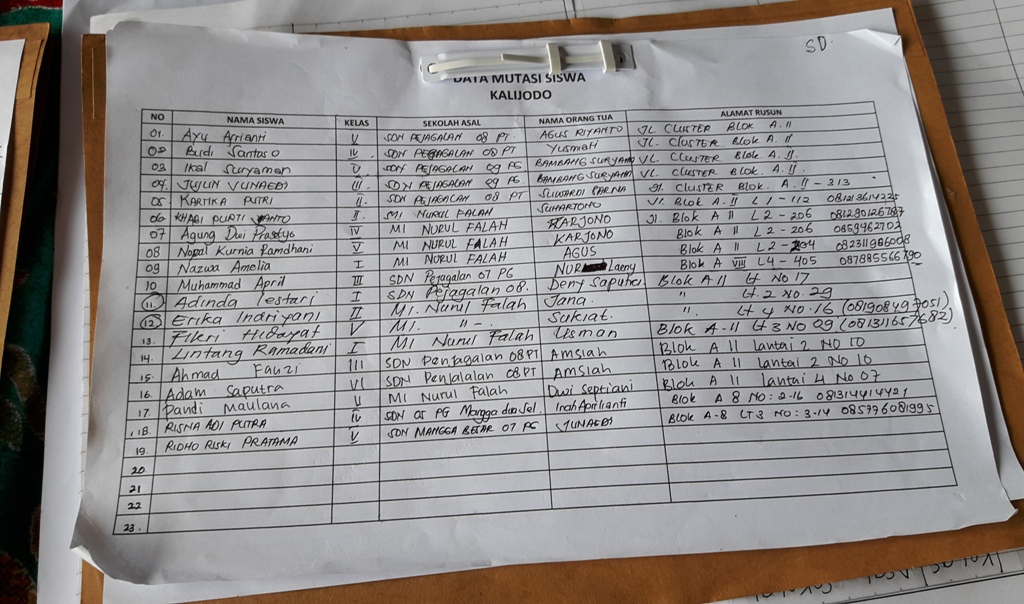 SD.
DATA MUTASI SISWA
KALIJODO
NO NAMA SISWA KELAS SEKOLAH ASAL NAMA ORANG TUA ALAMAT RUSUN
01. Ayu Aprianti V SDN PEJAGALAN 08 PT. AGUS RIYANTO JL. CLUSTER BLOK A.II
02 Budi Santoso IV SDN PEJAGALAN 08 PT Yusmiah JL. CLUSTER Blok A.II
03 Ikal Suryaman V SDN PEJAGALAN 09 PG BAMBANG SURYANA JL. CLUSTER BLOK A.II
04. JULIN JUNAEDI III. SDN PEJAGALAN 09 PG BAMBANG SURYANA JL. CLUSTER BLOK A.II.
05 KARTIKA PUTRI II. SDN PEJAGALAN 08 PT SUWARDI CARNA Jl. CLUSTER BLOK. A.II - 313
06 PURTI II. MI NURUL FALAH SUHARTONO Jl. BLOK A.II L1 - 112 081213614225
07 Agung Dwi Prastyo IV MI NURUL FALAH KARJONO Jl. BLOK A II L2 - 206 081290126787
08 Nopal Kurnia Ramdhani V MI NURUL FALAH KARJONO BLOK A II L2 - 206 0859462702
09 Nazwa Amelia I MI NURUL FALAH AGUS BLOK A II L2 - 204 082311986008
10 Muhammad April III SDN Pejagalan 07 PG NUR Laeny BLOK A VIII L4 - 405 087885566790
11. Adinda lestari I SDN Pejagalan 08. Deny Saputra Blok A II Lt No 17
12. Erika Indriyani II MI. Nurul Falah Jana. " Lt.2 No.29
13. Fikri Hidayat V MI. " -. Sukiat. ". Lt 4 No.16 (081908497051)
14. Lintang Ramadani I MI Nurul Falah Usman Blok A-II Lt 3 No 29 (081311657682)
15. Ahmad Fauzi III SDN Penjagalan 08 PT Amsiah Blok A II lantai 2 No 10
16. Adam Saputra VI SDN Penjalalan 08 PT Amsiah Blok A II lantai 2 No 10
17 Dandi Maulana V MI Nurul Falah Dwi Septiani Blok A II lantai 4 No 07
18. RISNA ADI PUTRA IV SDN 05 PG Mangga dua Sel. Indah Aprilianti Blok A 8 NO: 2-16 081314414421
19. RIDHO RISKI PRATAMA V SDN MANGGA BESAR 07 PG JUNAEDI BLOK A-8 LT 3 NO: 3-14 085776081995
20
21
22
23.